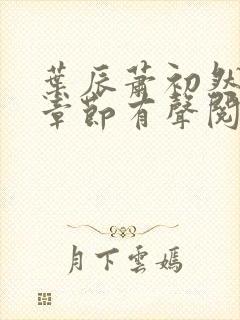 葉辰蕭初然
章節有聲閱
月下雲嫣